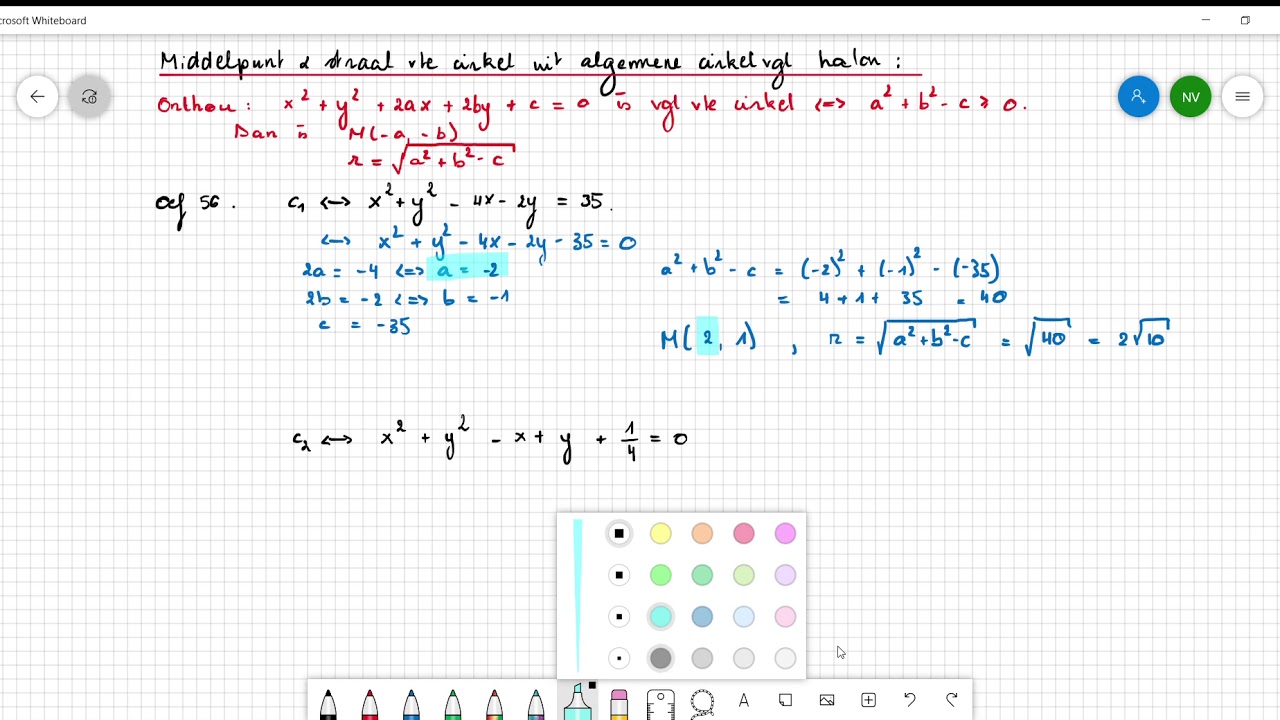 crosoft Whiteboard
Middelpunt & straal vte cirkel uit algemene cirkelvgl halen :
Onthou : x² + y² + 2ax + 2by + c = 0 is vgl vte cirkel <=> a² + b² - c > 0.
Dan is M(-a, -b)
r = √(a² + b² - c)
NV
oef 56. c₁ <-> x² + y² - 4x - 2y = 35.
<-> x² + y² - 4x - 2y - 35 = 0
2a = -4 <=> a = -2
a² + b² - c = (-2)² + (-1)² - (-35)
2b = -2 <=> b = -1
= 4 + 1 + 35 = 40
c = -35
M(2, 1) , r = √(a² + b² - c) = √40 = 2√10
c₂ <-> x² + y² - x + y + 1/4 = 0
A